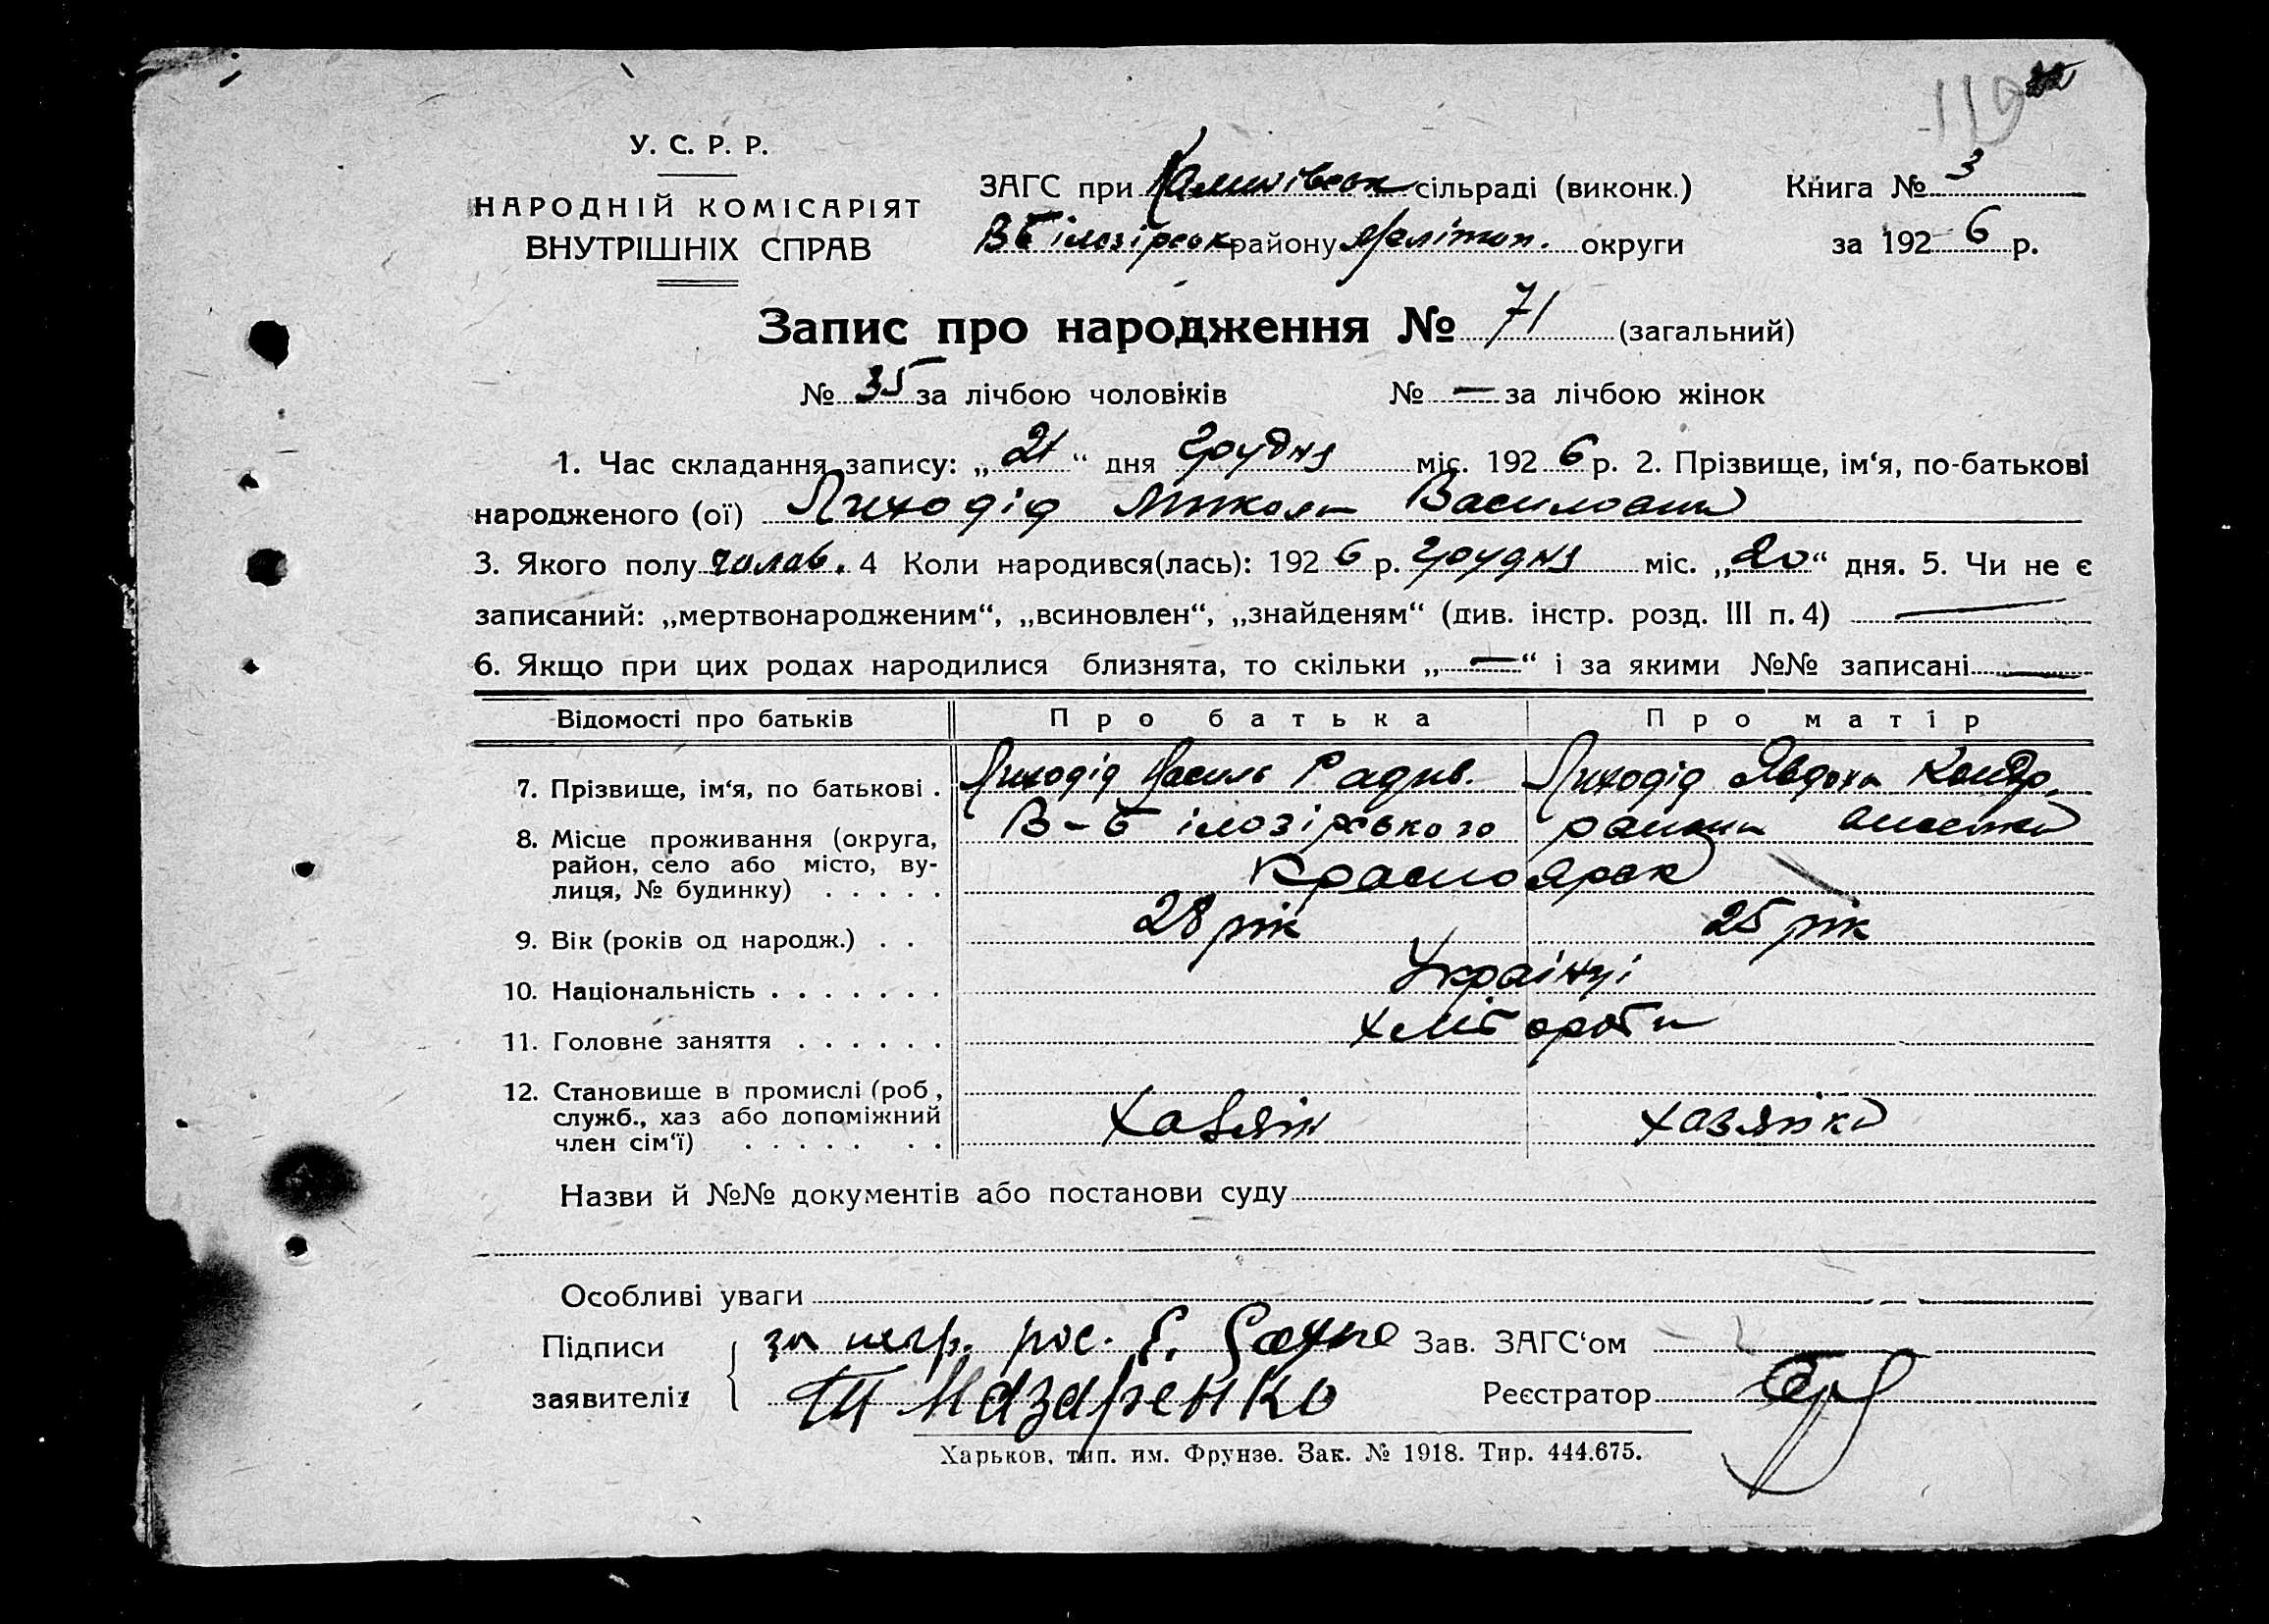 119
У. С. Р. Р.
НАРОДНІЙ КОМІСАРІЯТ
ВНУТРІШНІХ СПРАВ
ЗАГС при сільраді (виконк.) Книга № 3
В Білозірськ району Меліт округи за 1926 р.
Запис про народження № 71 (загальний)
№ 35 за лічбою чоловіків № — за лічбою жінок
1. Час складання запису: „21“ дня Грудня міс. 1926 р. 2. Прізвище, ім‘я, по-батькові
народженого (ої) Лиходід Микола Василович
3. Якого полу чолов. 4 Коли народився(лась): 1926 р. грудня міс. „20“ дня. 5. Чи не є
записаний: „мертвонародженим“, „всиновлен“, „знайденям“ (див. інстр. розд. III п. 4) —
6. Якщо при цих родах народилися близнята, то скільки „—“ і за якими №№ записані —
Відомості про батьків Про батька Про матір
7. Прізвище, ім‘я, по батькові . Лиходід Василь Радив. Лиходід Явдоха Кондр.
8. Місце проживання (округа, район, село або місто, ву- лиця, № будинку) . . . . . В-Білозірського району
Красноярск
9. Вік (років од народж.) . . 28 рік 25 рік
10. Національність . . . . . . . Українці
11. Головне заняття . . . . . . хлібороби
12. Становище в промислі (роб, служб., хаз або допоміжний член сім‘ї) . . . . . . . Хазяїн хазяйка
Назви й №№ документів або постанови суду
Особливі уваги
Підписи за негр. рос. Зав. ЗАГС‘ом
заявителів Назаренко Реєстратор
Харьков, тип. им. Фрунзе. Зак. № 1918. Тир. 444.675.